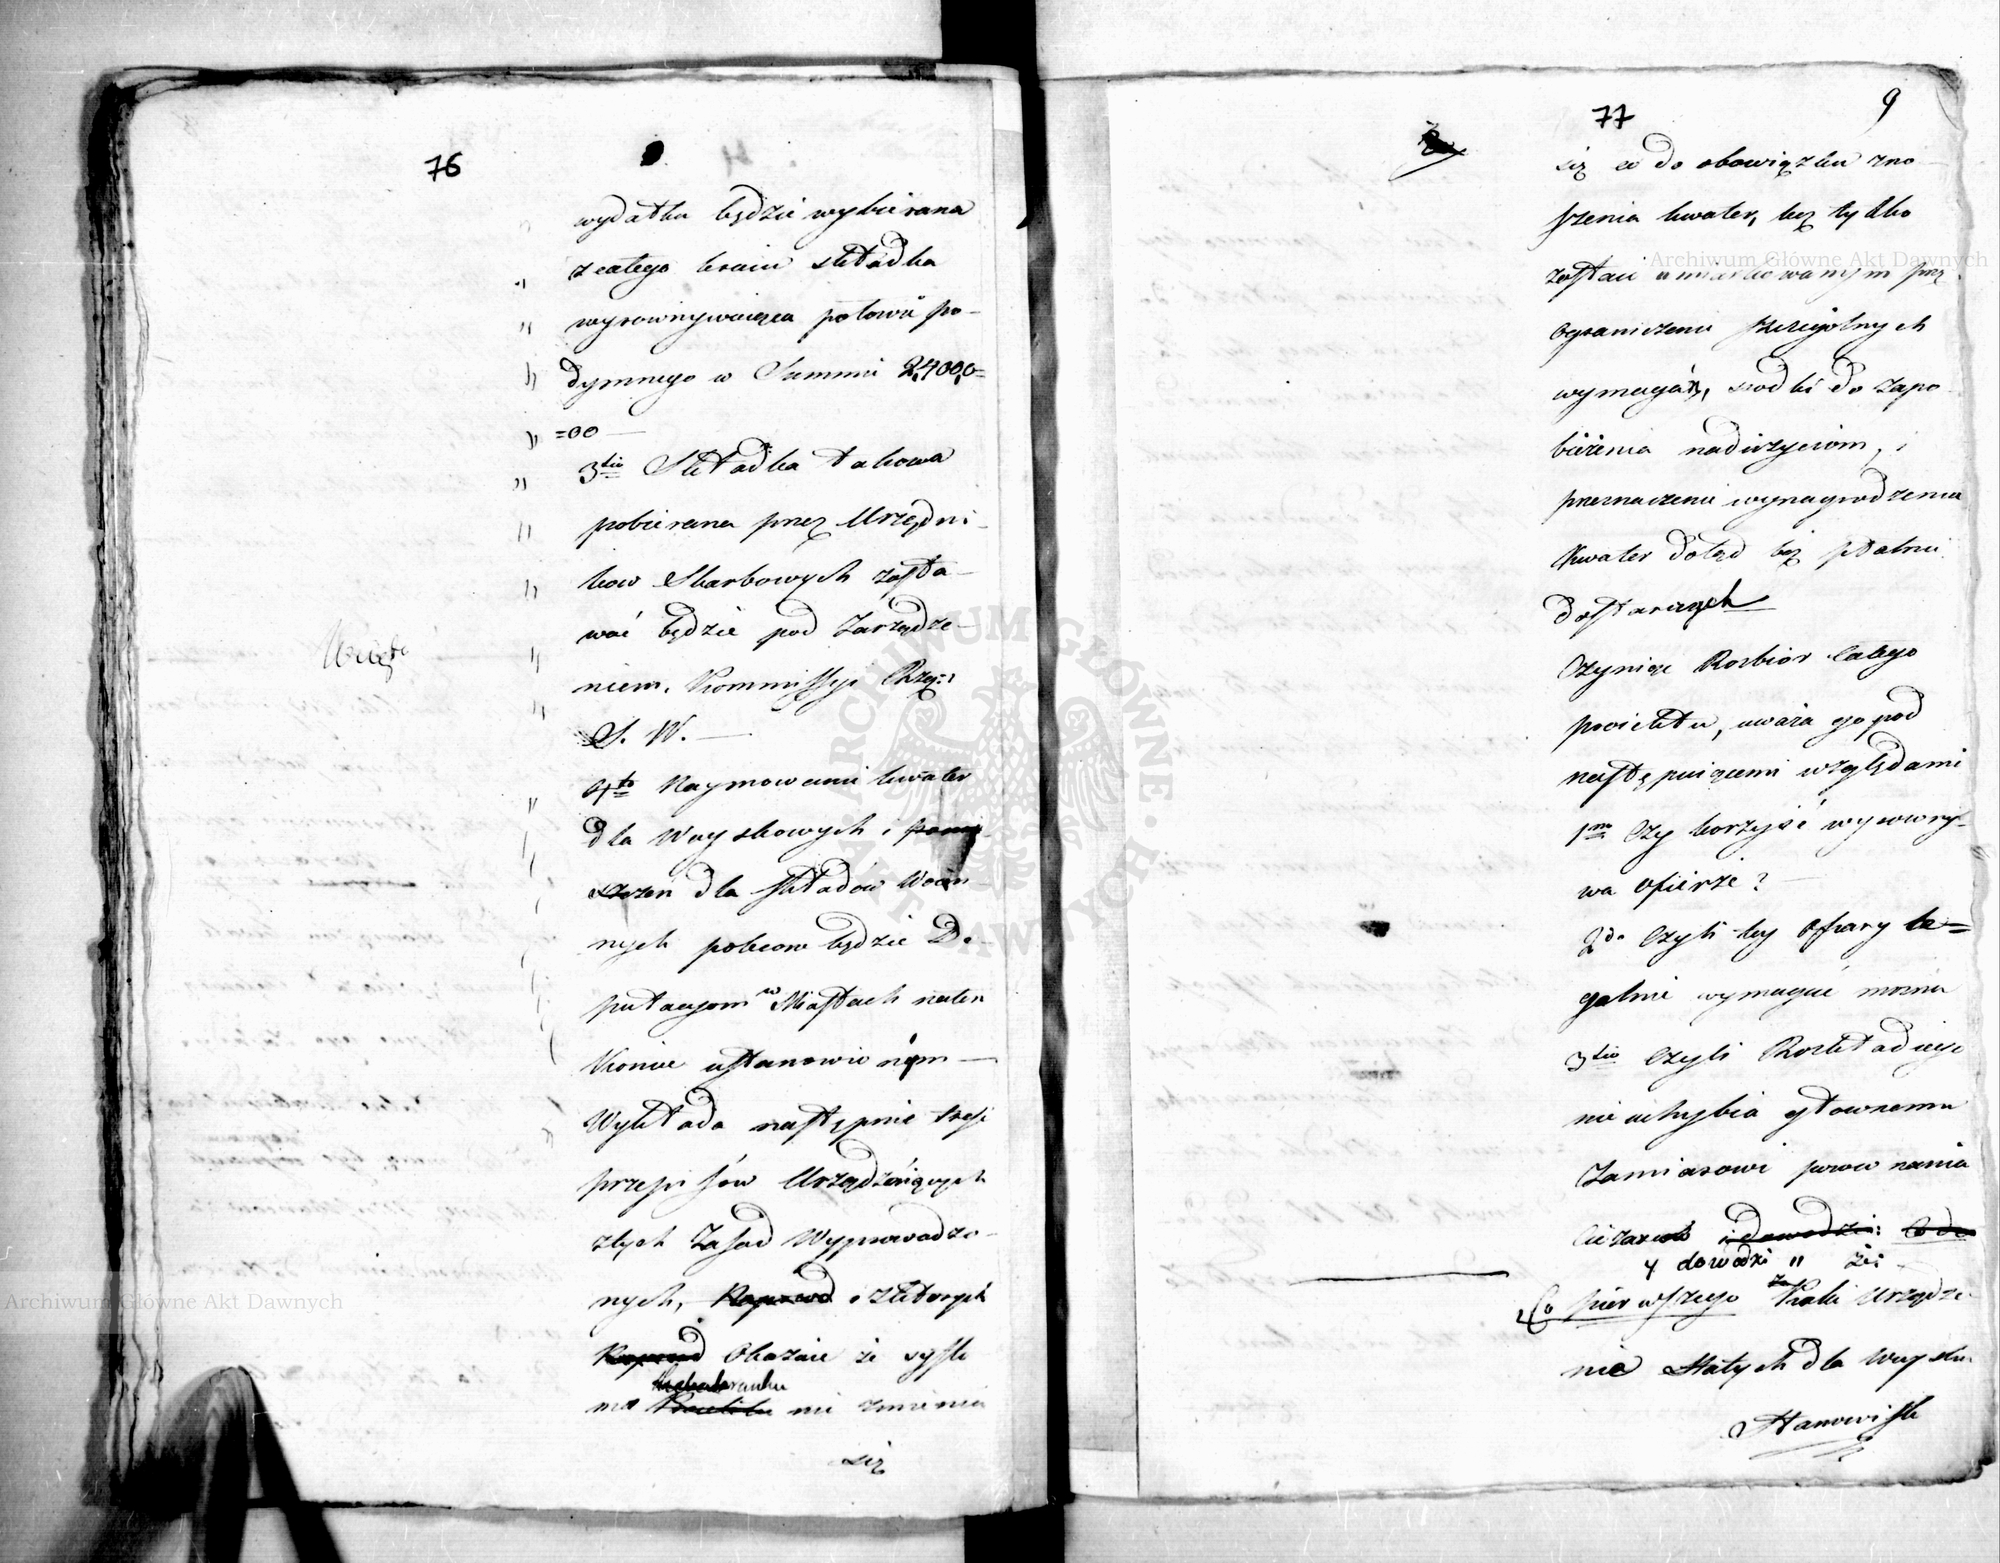 76
wydatku będzie wybierana
z całego kraiu składka
wyrownywaiąca połowie po-
dymnego w Summie 2,400,0=
=00 —
3tio Składka takowa
pobierana przez Urzędni-
kow Skarbowych zosta-
wać będzie pod Zarządze-
niem Kommissyi Rzą:
S. W. —
4to Naymowanie kwater
dla Woyskowych i pomie-
szczeń dla składów Woien-
nych polecone będzie De-
putacyom w Miastach na ten
Koniec ustanowionym —
Wykłada następnie treść
przepisów Urządzaiących
z tych Zasad Wyprowadzo-
nych, z których
Okazuie że syste
ma nie zmienia
się
77
9
się co do obowiązku zno
szenia kwater, lecz tylko
zostaie umiarkowanym przez
ograniczenie szczególnych
wymagań, srodki do zapo
bieżenia nadużyciom, i
przeznaczenie wynagrodzenia
Kwater dotąd bez płatnie
dostarczanych
Czyniąc Rozbior całego
proiektu, uważa go pod
następuiącemi względami
1mo Czy korzyść wyrowny-
wa ofierze?
2do Czyli tey Ofiary le=
galnie wymagać można
3tio Czyli Rozkład iego
nie uchybia głownemu
Zamiarowi porownania
Ciężarow i dowodzi: Co do
y dowodzi " że:
Co pierwszego za Kroki Urządze-
nia Stałych dla Woyska
Stanowisk
Archiwum Główne Akt Dawnych
Archiwum Główne Akt Dawnych
ARCHIWUM GŁÓWNE AKT DAWNYCH